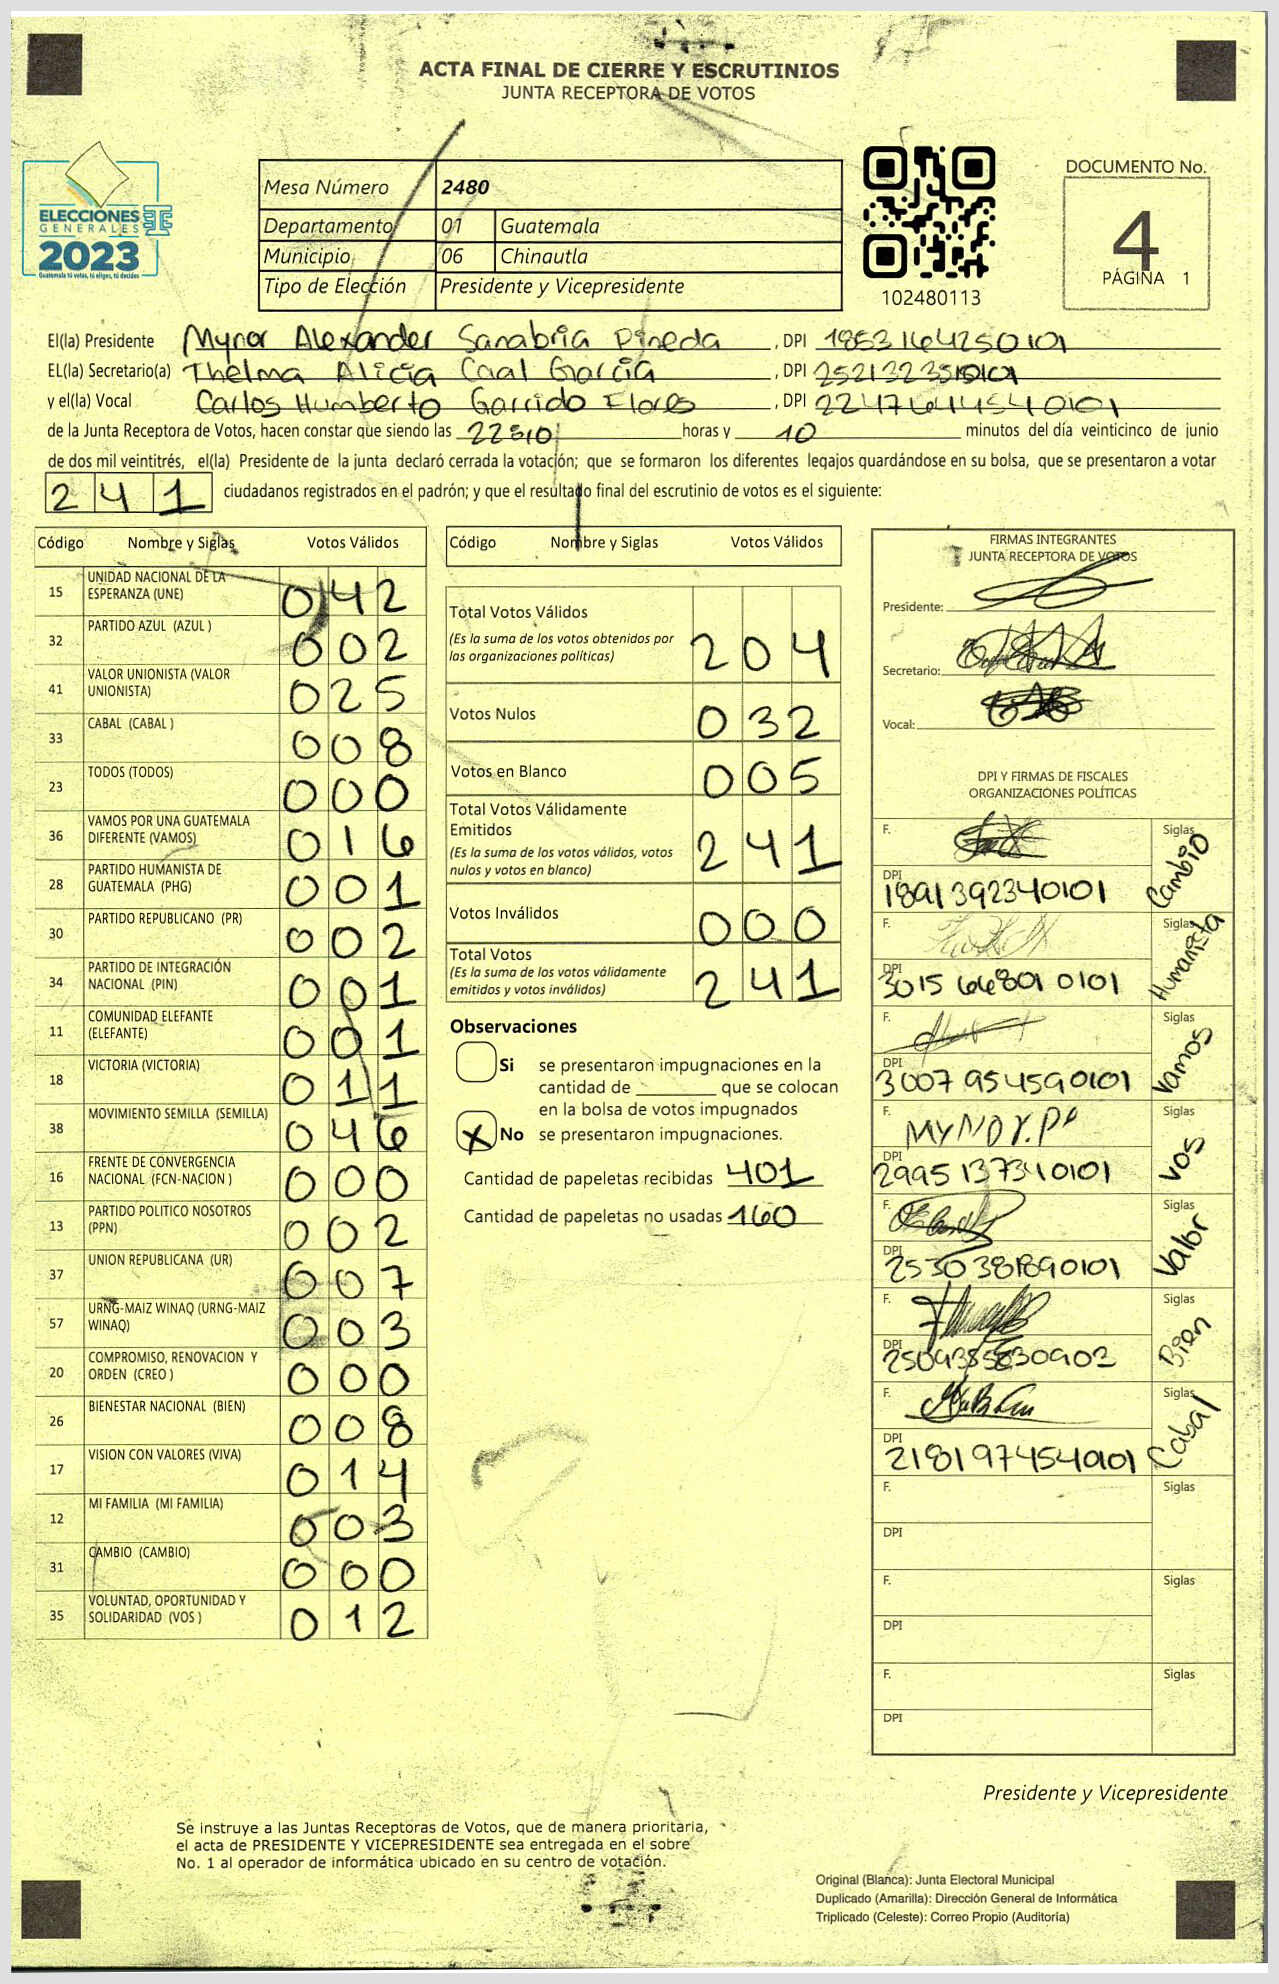 ACTA FINAL DE CIERRE Y ESCRUTINIOS
JUNTA RECEPTORA DE VOTOS
ELECCIONES
GENERALES
2023
Guatemala tú votas, tú eliges, tú decides
Mesa Número 2480
Departamento 01 Guatemala
Municipio 06 Chinautla
Tipo de Elección Presidente y Vicepresidente
102480113
DOCUMENTO No.
4
PÁGINA 1
El(la) Presidente Mynor Alexander Sanabria Pineda , DPI 1853164250101
EL(la) Secretario(a) Thelma Alicia Caal García , DPI
y el(la) Vocal Carlos Humberto Garrido Flores , DPI 2247644540101
de la Junta Receptora de Votos, hacen constar que siendo las horas y 10 minutos del día veinticinco de junio
de dos mil veintitrés, el(la) Presidente de la junta declaró cerrada la votación; que se formaron los diferentes legajos guardándose en su bolsa, que se presentaron a votar
241 ciudadanos registrados en el padrón; y que el resultado final del escrutinio de votos es el siguiente:
Código Nombre y Siglas Votos Válidos
15 UNIDAD NACIONAL DE LA ESPERANZA (UNE) 042
32 PARTIDO AZUL (AZUL ) 002
41 VALOR UNIONISTA (VALOR UNIONISTA) 025
33 CABAL (CABAL ) 008
23 TODOS (TODOS) 000
36 VAMOS POR UNA GUATEMALA DIFERENTE (VAMOS) 016
28 PARTIDO HUMANISTA DE GUATEMALA (PHG) 001
30 PARTIDO REPUBLICANO (PR) 002
34 PARTIDO DE INTEGRACIÓN NACIONAL (PIN) 001
11 COMUNIDAD ELEFANTE (ELEFANTE) 001
18 VICTORIA (VICTORIA) 011
38 MOVIMIENTO SEMILLA (SEMILLA) 046
16 FRENTE DE CONVERGENCIA NACIONAL (FCN-NACION ) 000
13 PARTIDO POLITICO NOSOTROS (PPN) 002
37 UNION REPUBLICANA (UR) 007
57 URNG-MAIZ WINAQ (URNG-MAIZ WINAQ) 003
20 COMPROMISO, RENOVACION Y ORDEN (CREO ) 000
26 BIENESTAR NACIONAL (BIEN) 008
17 VISION CON VALORES (VIVA) 014
12 MI FAMILIA (MI FAMILIA) 003
31 CAMBIO (CAMBIO) 000
35 VOLUNTAD, OPORTUNIDAD Y SOLIDARIDAD (VOS ) 012
Código Nombre y Siglas Votos Válidos
Total Votos Válidos 204
(Es la suma de los votos obtenidos por
las organizaciones políticas)
Votos Nulos 032
Votos en Blanco 005
Total Votos Válidamente
Emitidos 241
(Es la suma de los votos válidos, votos
nulos y votos en blanco)
Votos Inválidos 000
Total Votos 241
(Es la suma de los votos válidamente
emitidos y votos inválidos)
Observaciones
Si se presentaron impugnaciones en la
cantidad de ________ que se colocan
en la bolsa de votos impugnados
X No se presentaron impugnaciones.
Cantidad de papeletas recibidas 401
Cantidad de papeletas no usadas 160
FIRMAS INTEGRANTES
JUNTA RECEPTORA DE VOTOS
Presidente:
Secretario:
Vocal:
DPI Y FIRMAS DE FISCALES
ORGANIZACIONES POLÍTICAS
F. Siglas Cambio
DPI 1891392340101
F. Siglas Humanista
DPI 3015668010101
F. Siglas Vamos
DPI 3007954590101
F. Siglas Vos
DPI 2995137340101
F. Siglas Valor
DPI 2530381890101
F. Siglas Bien
DPI
F. Siglas Cabal
DPI 2181974540101
F. Siglas
DPI
F. Siglas
DPI
F. Siglas
DPI
Presidente y Vicepresidente
Se instruye a las Juntas Receptoras de Votos, que de manera prioritaria,
el acta de PRESIDENTE Y VICEPRESIDENTE sea entregada en el sobre
No. 1 al operador de informática ubicado en su centro de votación.
Original (Blanca): Junta Electoral Municipal
Duplicado (Amarilla): Dirección General de Informática
Triplicado (Celeste): Correo Propio (Auditoría)